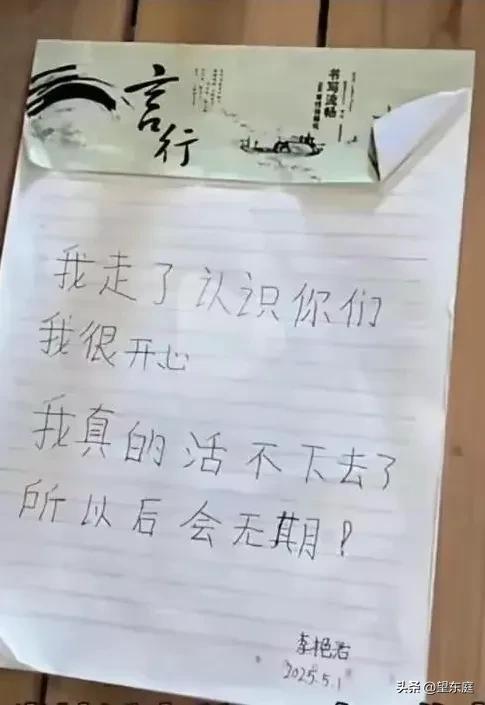 言行
书写流畅
我走了认识你们
我很开心
我真的活不下去了
所以后会无期!
2025.5.1
头条 @望东庭